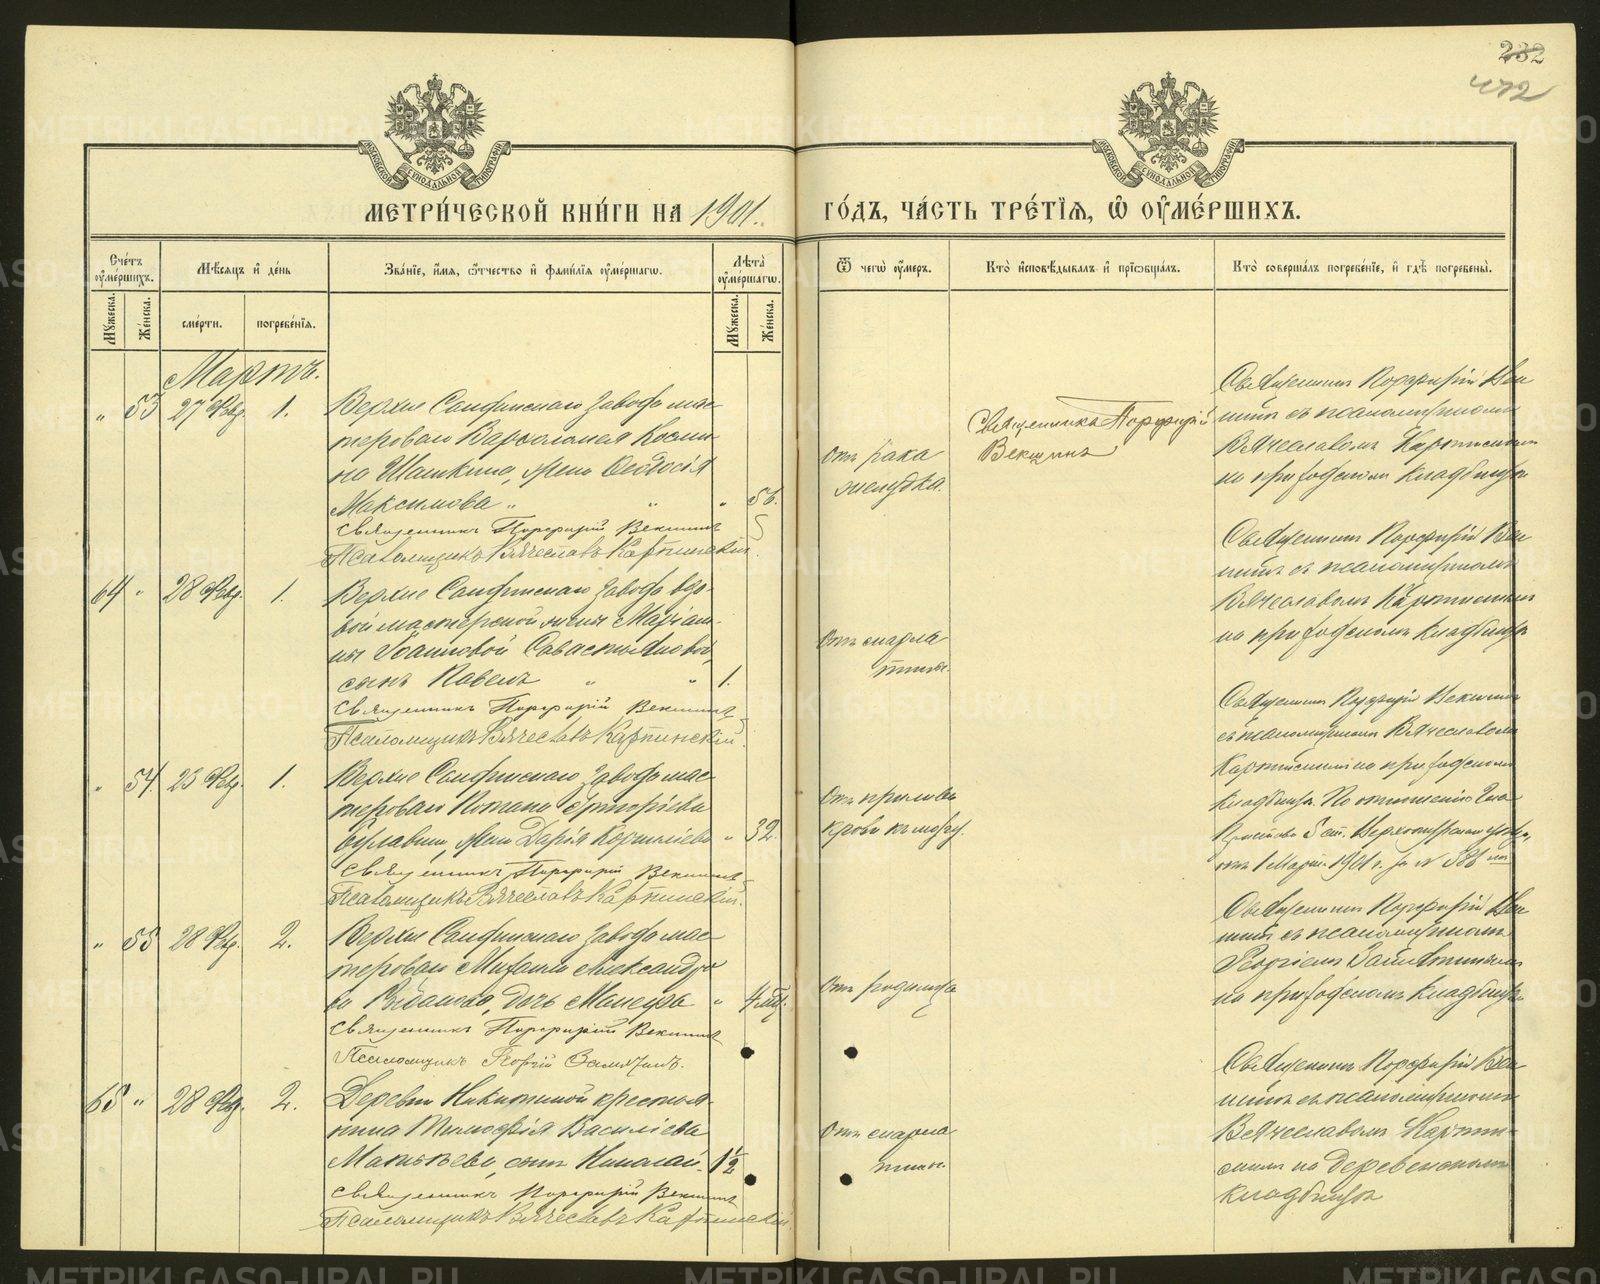 232
472
МОСКОВСКОЙ СѴНОДАЛЬНОЙ ТИПОГРАФІИ
МОСКОВСКОЙ СѴНОДАЛЬНОЙ ТИПОГРАФІИ
МЕТРИ́ЧЕСКОЙ КНИ́ГИ НА 1901.
ГО́ДЪ, ЧА́СТЬ ТРЕ́ТЇѦ, Ѡ҆ ОУ҆МЕ́РШИХЪ.
Сче́тъ оу҆ме́ршихъ.
Мѣ́сѧцъ и҆ де́нь
Зва́нїе, и҆́мѧ, ѻ҆́тчество и҆ фами́лїѧ оу҆ме́ршагѡ.
Лѣ́та оу҆ме́ршагѡ.
Ѿ чегѡ̀ оу҆́меръ.
Кто̀ и҆сповѣ́дывалъ и҆ прїѡбща́лъ.
Кто̀ соверша́лъ погребе́нїе, и҆ гдѣ̀ погребены̀.
Мꙋ́жеска.
Же́нска.
сме́рти.
погребе́нїѧ.
Мꙋ́жеска.
Же́нска.
Мартъ.
" 53 27 Февр. 1.
Верхне Саифинскаго завода мас
тероваго Варѳоломея Косми
на Шашкина, жена Ѳеодосія
Максимова " " " 56.
Священникъ Порфирій Векшинъ
Псаломщикъ Вячеславъ Карпинскій.
Отъ рака
желудка.
Священникъ Порфирій
Векшинъ
Священникъ Порфирій Век
шинъ съ псаломщикомъ
Вячеславомъ Карпинскимъ
на приходскомъ кладбищѣ
64 " 28 Февр. 1.
Верхне Саифинскаго завода вдо
вой мастерской жены Маріам
ны Іоанновой Савастьяновой,
сынъ Павелъ " " 1.
Священникъ Порфирій Векшинъ
Псаломщикъ Вячеславъ Карпинскій.
Отъ скарла
тины.
Священникъ Порфирій Век
шинъ съ псаломщикомъ
Вячеславомъ Карпинскимъ
на приходскомъ кладбищѣ
" 54. 23 Февр. 1.
Верхне Саифинскаго завода мас
тероваго Романа Григоріева
Булавина, жена Дарія Корниліева " 32.
Священникъ Порфирій Векшинъ
Псаломщикъ Вячеславъ Карпинскій.
Отъ прилива
крови къ мозгу.
Священникъ Порфирій Векшинъ
съ псаломщикомъ Вячеславомъ
Карпинскимъ на приходскомъ
кладбищѣ. По отношенію Г-на
Пристава 5 ст. Верхотурскаго уѣзда,
отъ 1 Марта 1901 г. за № 586
" 55 28 Февр. 2.
Верхне Саифинскаго завода мас
тероваго Михаила Александро
ва дочь Манефа " 4 мѣс.
Священникъ Порфирій Векшинъ
Псаломщикъ Георгій Замятинъ.
Отъ родимца
Священникъ Порфирій Век
шинъ съ псаломщикомъ
Георгіемъ Замятинымъ
на приходскомъ кладбищѣ.
65 " 28 Февр. 2.
Деревни Никитиной крестья
нина Тимоѳея Василіева
сынъ Николай. 1 1/2
Священникъ Порфирій Векшинъ
Псаломщикъ Вячеславъ Карпинскій
Отъ скарла
тины.
Священникъ Порфирій Век
шинъ съ псаломщикомъ
Вячеславомъ Карпин-
скимъ на деревенскомъ
кладбищѣ
METRIKI.GASO-URAL.RU